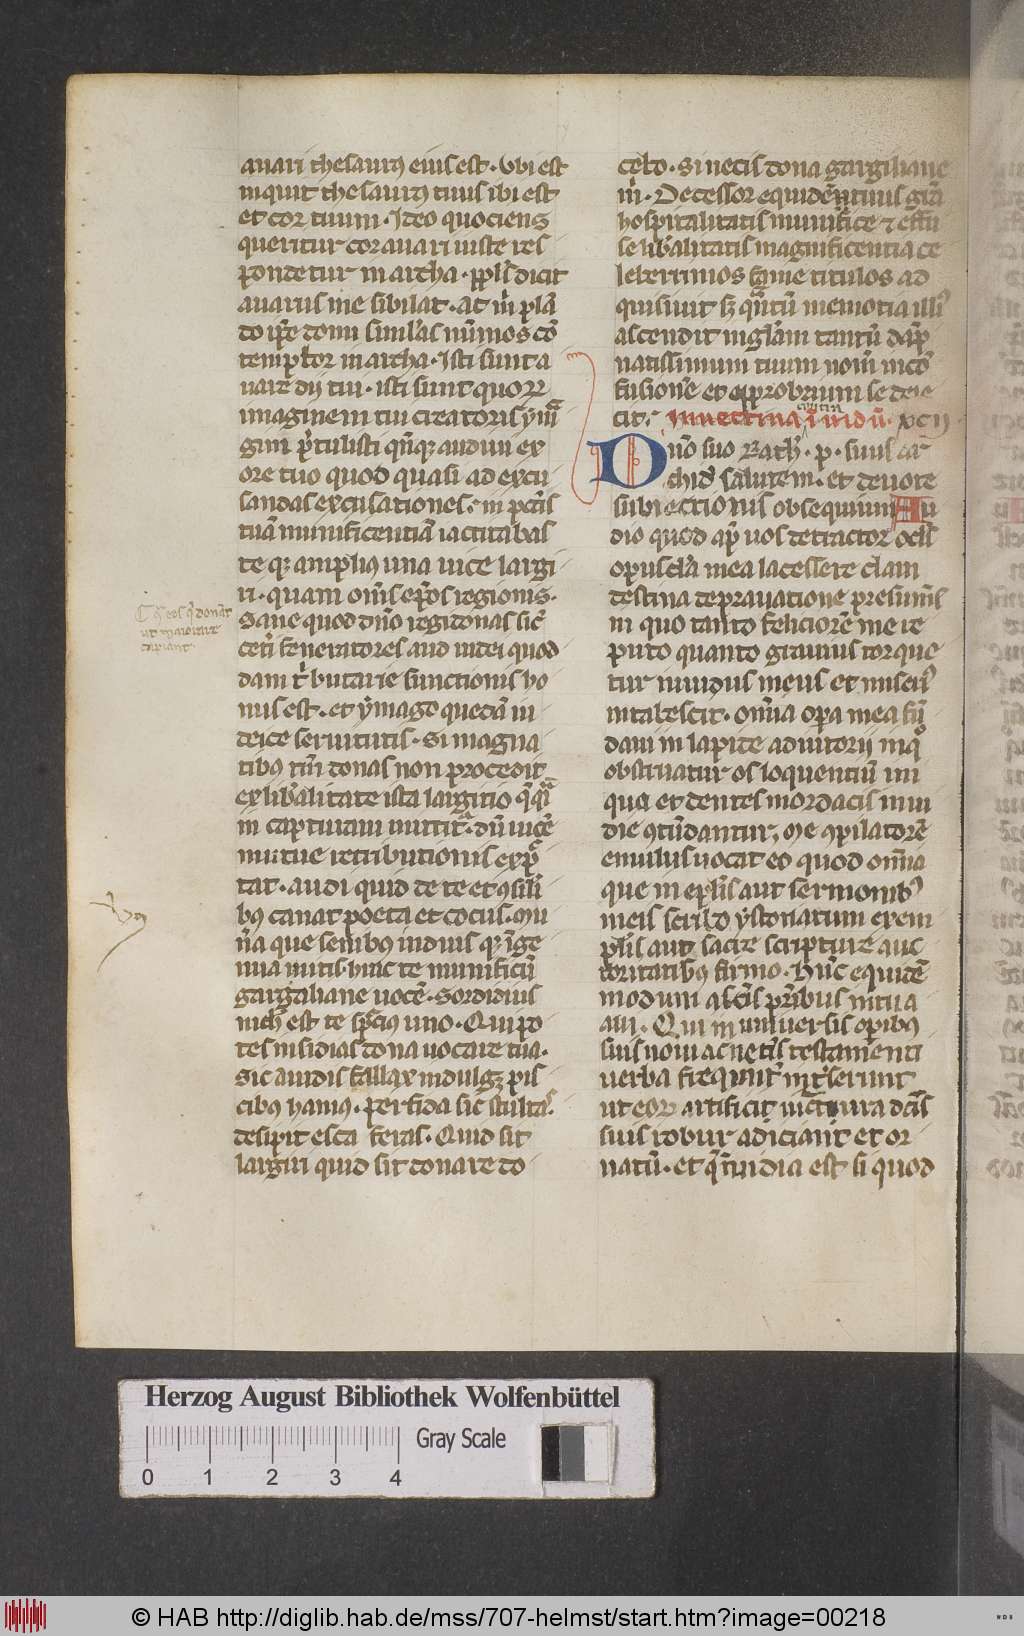 auari thesaurꝰ eius est · vbi est
inquit thesaurꝰ tuus ibi est
et cor tuum · Ideo quociens
queritur cor auari iuste res
pondetur in archa · dicit
auarus me sibilat · at m̄ plau
do ip̄e domi simul ac nūmos cō
templor in archa · Isti sunt a
uare dij tui · isti sunt quoꝝ
imaginem tui creatoris ymagini
p̄tulisti ex
ore tuo quod quasi ad excu
sandas excusationes in pctis
tuā munificentiā iactitabas
te qꝫ amplius una uice largi
ri · quam om̄s ep̄os regionis ·
Sane quod dn̄o regi donas sic̄
ceteri feneratores aud iudei quod
dam tributarie functionis ho
nus est · et ymago quedā iu
daice seruitutis · Si magna
tibꝰ tm̄ donas non procedit
ex lib̄alitate ista largitio
in capturam mittitur · dū uicē
mutue retributionis expec
tat · audi quid de te et
bꝰ canat poeta et cocus · Mu
n̄a que senibus uiduis qꝫ īge
nua mittis · hinc te munificū
gargaliane uocē · Sordidius
nichil est te spurcius uno · Qui po
tes insidias dona uocare tua ·
Sic auidis fallax indulgꝫ pis
cibus hamus · Perfida sic stultas
desipit esca feras · Quid sit
largiri quid sit donare do
cebo · si necis dona gargiliane
m̄ · Decessor equidem tuus
hospitalitatis munifice ⁊ effu
se lib̄alitatis magnificentia ce
leberrimos fame titulos ad
quisiuit sꝫ qn̄tū memoria illiꝰ
ascendit in gl̄am tantū
natissimum tuum nomē in cō
fusionē et opprobrium se deie
cit · Inuectiua xcij
Dn̄o suo Rath · p · suus ar
chid salutem · et deuote
subiectionis obsequium Au
dio quod ap̄ uos detractor
opuscl̄a mea lacessere clam
destina deprauatione
in quo tanto feliciorē me re
puto quanto grauius torque
tur inuidus meus et miseriꝰ
intabescit · om̄ia opa mea fū
daui in lapide adiutorij in quo
obstruatur os loquentiū ini
qua et dentes mordacis inui
die contūdantur, me compilatorē
emulus uocat eo quod om̄ia
que in ep̄lis aut sermonibꝰ
meis scribo ystoriarum exem
plis aut sacre scripture auc
toritatibꝰ firmo · hūc equidē
modum a sanctis patribus mutua
ui · Qui in uniuersis opibꝰ
suis noui ac ueteris testamenti
verba frequenter inserunt
ut eoꝝ artificit iunctura dc̄is
suis robur adiciant et or
natū · et inuidia est si quod
Herzog August Bibliothek Wolfenbüttel
Gray Scale
0 1 2 3 4
© HAB http://diglib.hab.de/mss/707-helmst/start.htm?image=00218